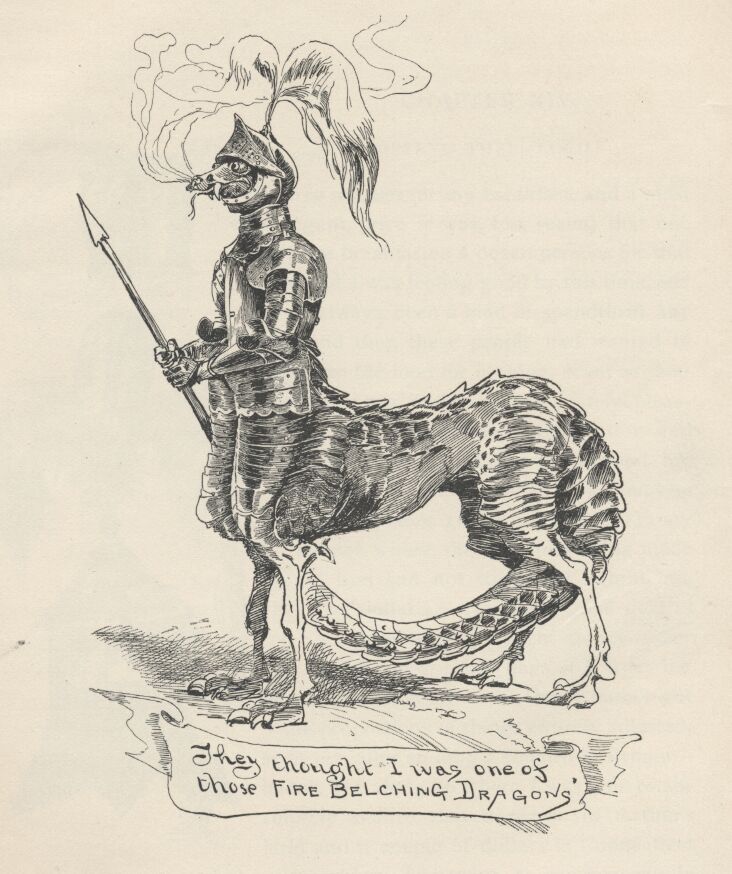 They thought I was one of
those FIRE BELCHING DRAGONS"